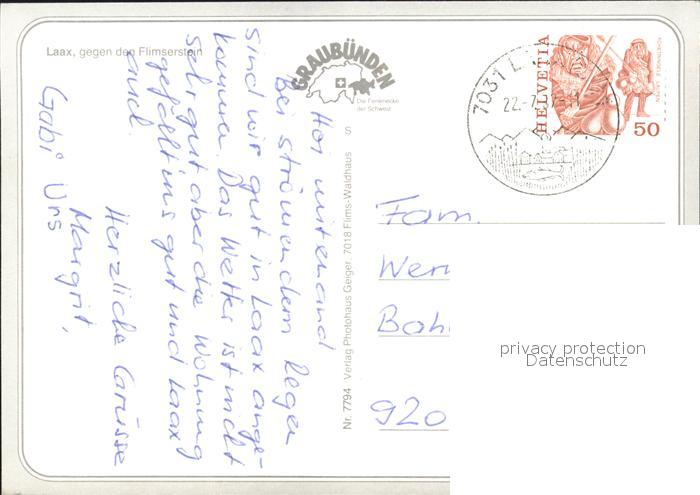 Laax, gegen den Flimserstein
GRAUBÜNDEN
Die Ferienecke
der Schweiz
S
Hoi mitenand
Bei strömendem Regen
sind wir gut in Laax ange-
kommen. Das Wetter ist nicht
sehr gut aber die Wohnung
gefällt uns gut und Laax
auch.
Herzliche Grüsse
Margrit,
Gabi Urs
Nr. 7794 Verlag Photohaus Geiger, 7018 Flims-Waldhaus
7031 L
22.-7.
HELVETIA
50
Fam.
Wer
Bah
920
privacy protection
Datenschutz